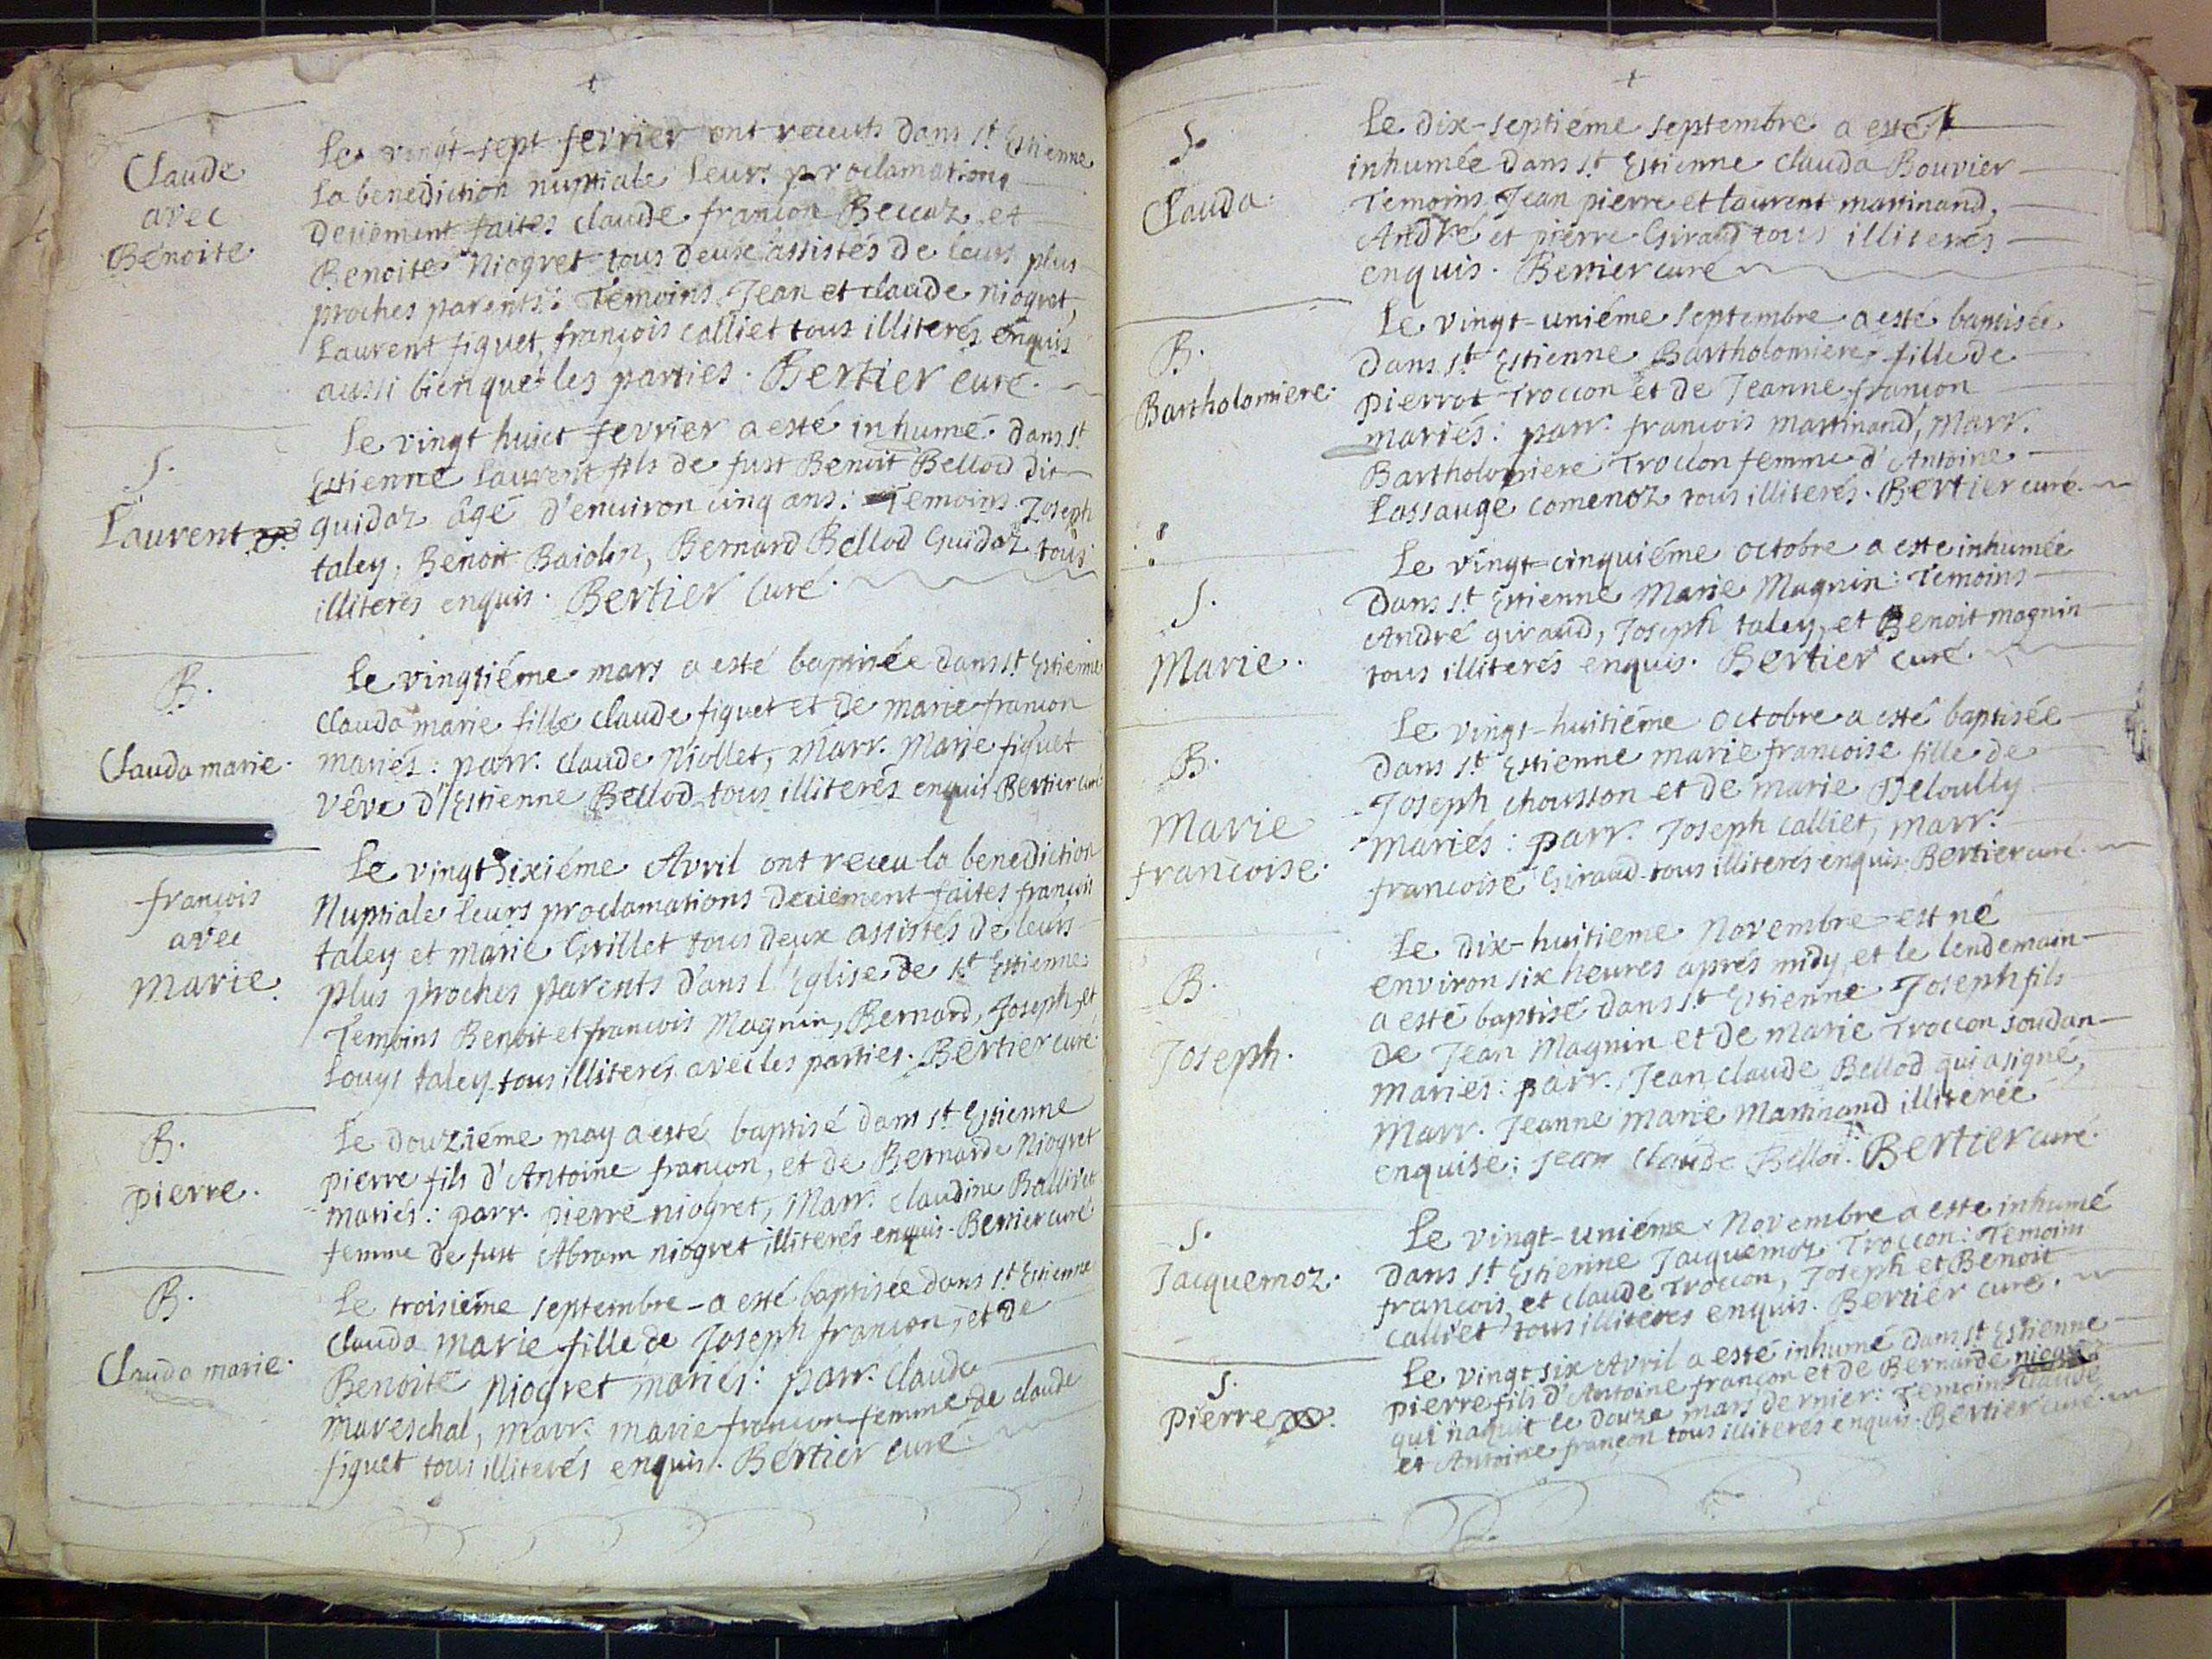 Claude
avec
Benoite.
Le vingt-sept fevrier ont receuts dans st Estienne
la benediction nuptiale leurs proclamations
deüement faites claude françon Beccaz et
Benoite Niogret tous deux assistés de leurs plus
proches parents: Temoins Jean et claude niogret,
Laurent figuet, françois calliet tous illiterés enquis
aussi bien que les parties. Bertier curé.
S.
Laurent
Le vingt huict fevrier a esté inhumé dans st
Estienne Laurent fils de fust Benoit Bellod dit
guidaz âgé d'environ cinq ans: Temoins Joseph
taley, Benoit Baiolin, Bernard Bellod Guidaz tous
illiterés enquis. Bertier Curé.
B.
Clauda marie.
Le vingtiéme mars a esté baptisée dans st Estienne
Clauda marie fille claude figuet et de marie françon
mariés: parr. claude Niollet, Marr. Marie figuet
vêve d'Estienne Bellod tous illiterés enquis Bertier curé
françois
avec
Marie.
Le vingt sixiéme Avril ont receu la benediction
Nuptiale leurs proclamations deüement faites françois
taley et marie Grillet tous deux assistés de leurs
plus proches parents dans l'Eglise de st Estienne
Temoins Benoit et françois Magnin, Bernard, Joseph, et
Louys taley tous illiterés avec les parties. Bertier curé
B.
pierre.
Le douziéme may a esté baptisé dans st Estienne
pierre fils d'Antoine françon, et de Bernarde Niogret
mariés: parr. pierre niogret, Marr. claudine Balliret
femme de fust Abram niogret illiterés enquis. Bertier curé
B.
Clauda marie.
Le troisiéme septembre a esté baptisée dans st Estienne
Clauda Marie fille de Joseph françon, et de
Benoite Niogret mariés: parr. claude
mareschal, marr. marie françon femme de claude
figuet tous illiterés enquis. Bertier curé.
S.
Clauda.
Le dix-septiéme septembre a esté
inhumée dans st Estienne clauda Bouvier
Temoins Jean pierre et laurent martinand,
André et pierre Giraud tous illiterés
enquis. Bertier curé
B.
Bartholomiere.
Le vingt-uniéme septembre a esté baptisée
dans st Estienne Bartholomiere fille de
pierrot Troccon et de Jeanne françon
mariés: parr. françois martinand, Marr.
Bartholomiere Troccon femme d'Antoine
Lassauge comenoz tous illiterés. Bertier curé.
S.
Marie.
Le vingt-cinquiéme octobre a esté inhumée
dans st Estienne Marie Magnin: Temoins
André giraud, Joseph taley, et Benoit magnin
tous illiterés enquis. Bertier curé.
B.
Marie
françoise.
Le vingt-huitiéme octobre a esté baptisée
dans st Estienne marie françoise fille de
Joseph chousson et de marie Deloully
Mariés: parr. Joseph calliet, marr.
françoise Giraud tous illiterés enquis Bertier curé.
B.
Joseph.
Le dix-huitieme Novembre est né
environ six heures aprés midy, et le lendemain
a esté baptisé dans st Estienne Joseph fils
de Jean Magnin et de marie Troccon soudan
mariés: parr. Jean claude Bellod qui a signé,
Marr. Jeanne marie Martinand illiterée
enquise: Jean Claude Bellod. Bertier curé.
S.
Jacquemoz.
Le vingt-uniéme Novembre a esté inhumé
dans st Estienne Jacquemoz Troccon: Temoins
françois et claude Troccon, Joseph et Benoit
Calliet tous illiterés enquis. Bertier curé.
S.
Pierre
Le vingt six Avril a esté inhumé dans st Estienne
pierre fils d'Antoine françon et de Bernarde niogret
qui naquit le douze mars dernier: Temoins claude
et Antoine françon tous illiterés enquis. Bertier curé.